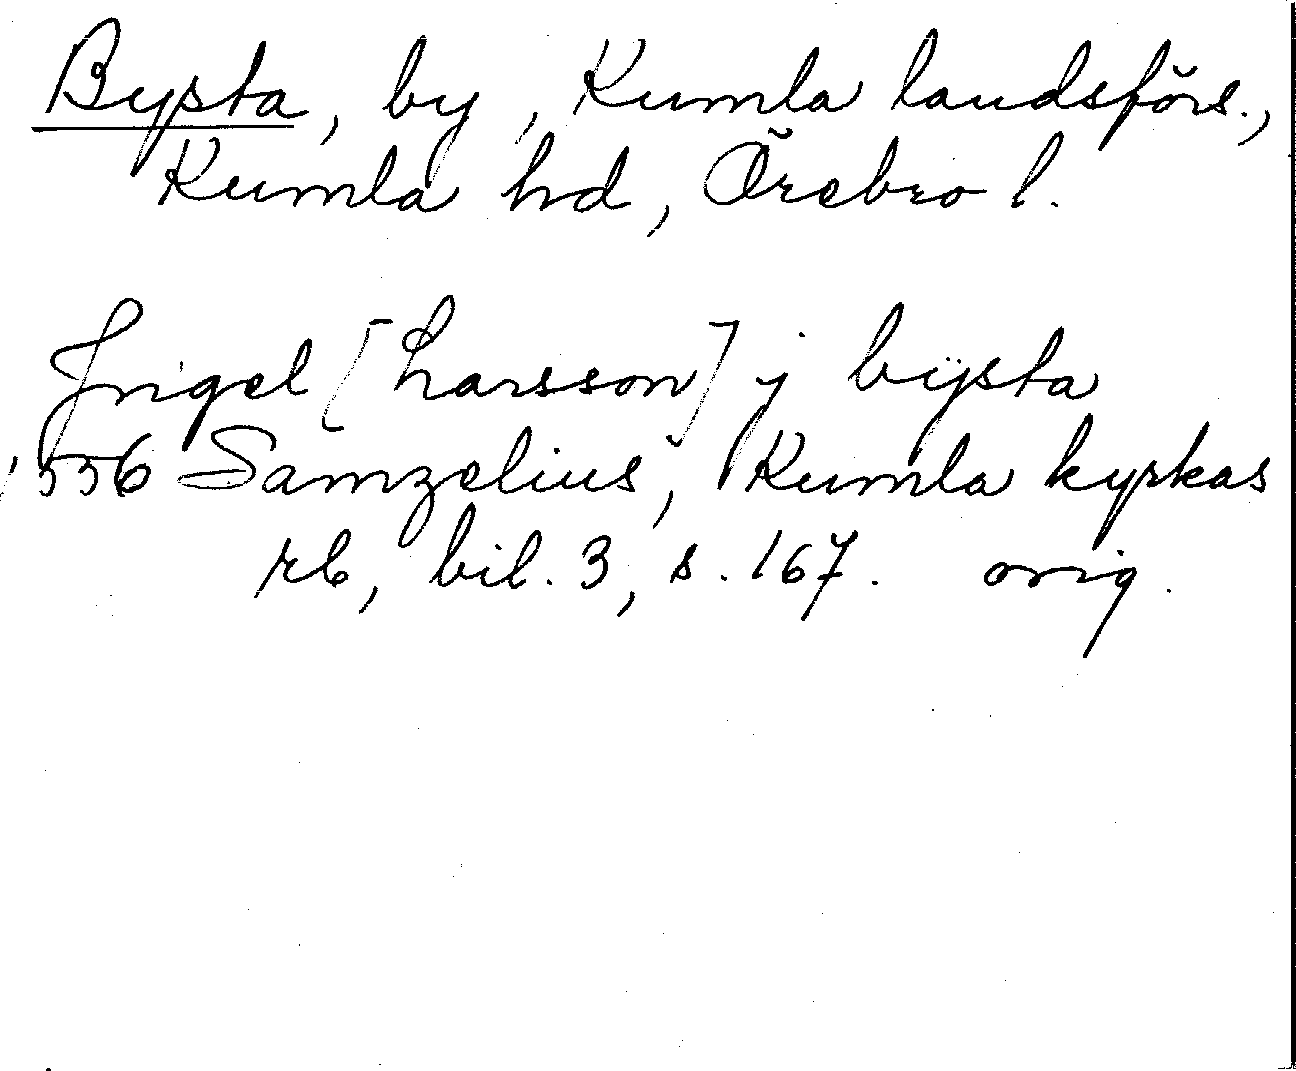 Bysta, by, Kumla landsförs.,
Kumla hd, Örebro l.
Jngel [Larsson] j bÿsta
1556 Samzelius, Kumla kyrkas
rb, bil. 3, s. 167. orig.